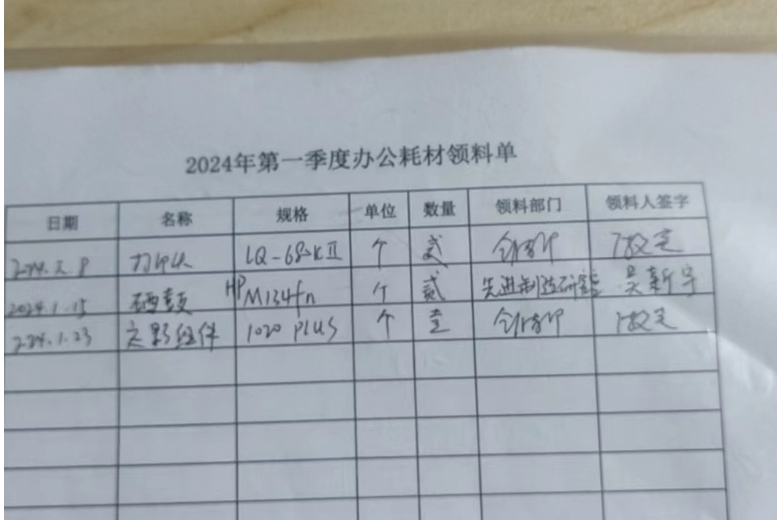 2024年第一季度办公耗材领料单
日期 名称 规格 单位 数量 领料部门 领料人签字
LQ-680KII 个 贰
2024.1.15 硒鼓 HP M134fn 个 贰 先进制造研 吴新宇
2024.1.23 定影组件 1020 PLUS 个 壹